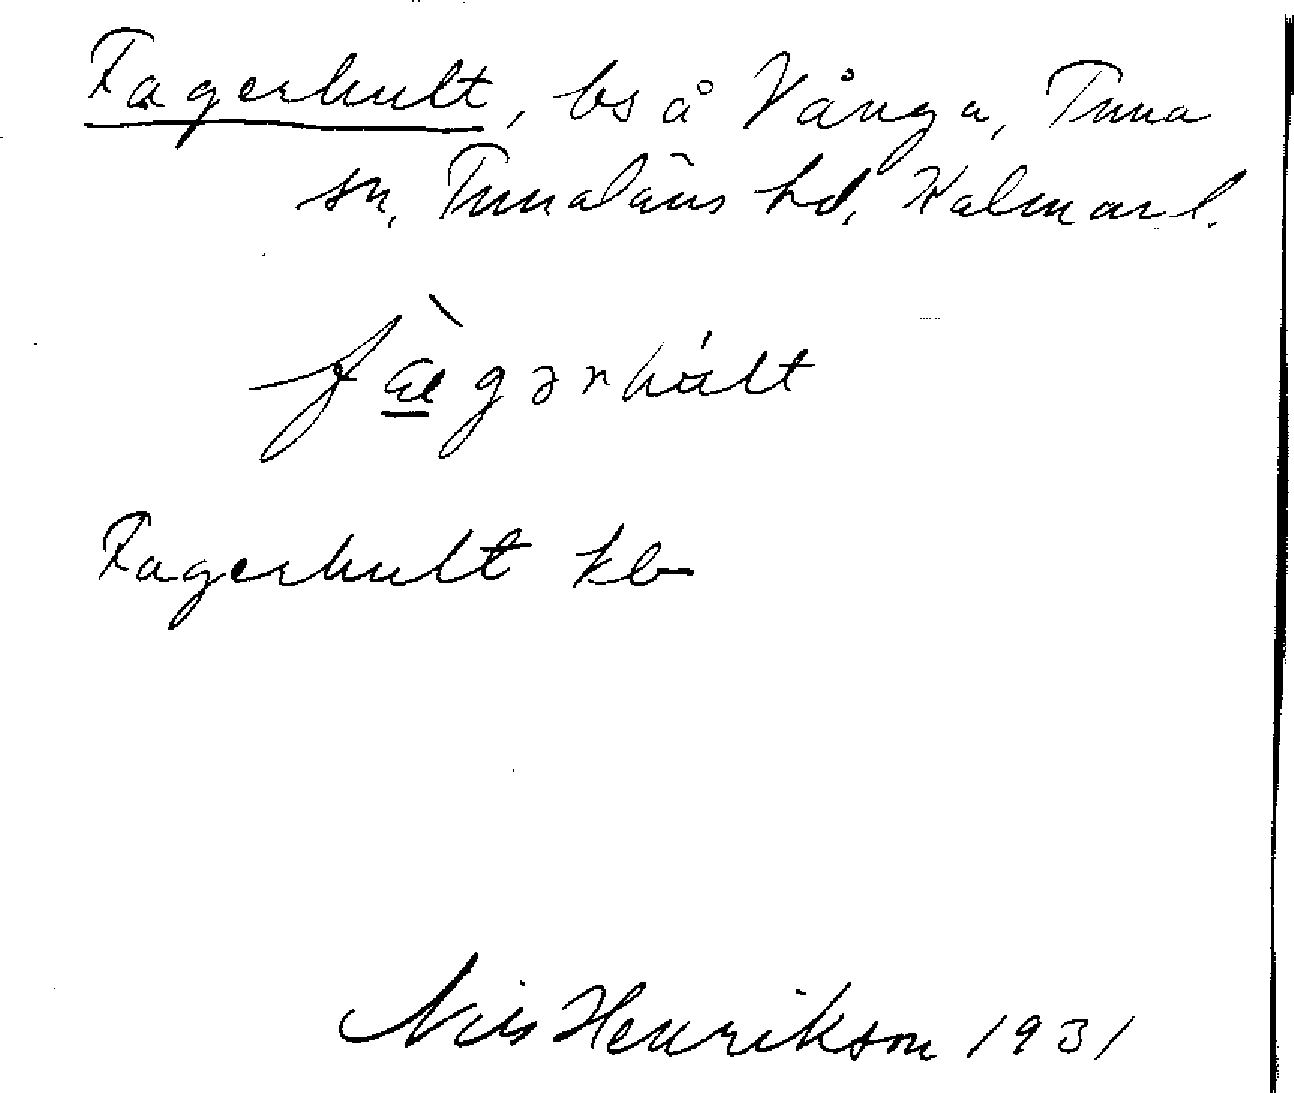 Fagerhult, bs å Vånga, Tuna
sn, Tunaläns hd, Kalmar l.
fæ̀gərhúlt
Fagerhult kb
Nils Henrikson 1931